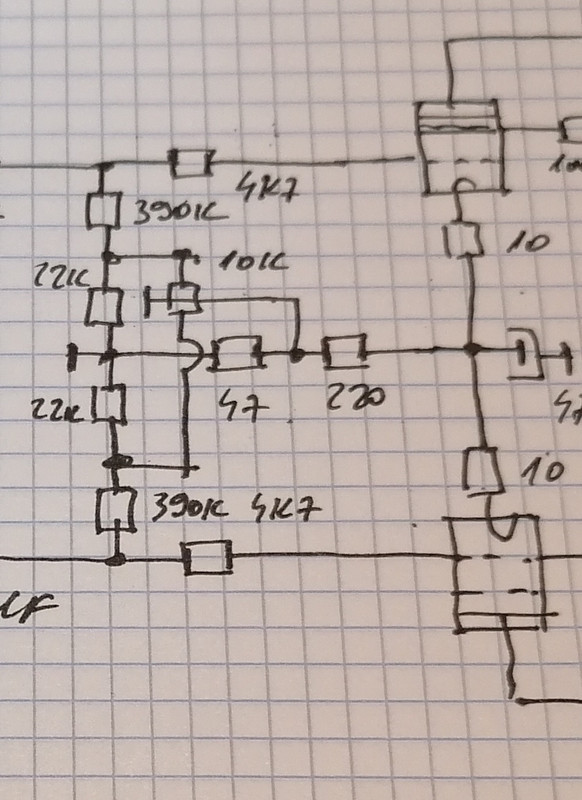 4K7
390K
10
10K
22K
47
220
22K
10
390K 4K7